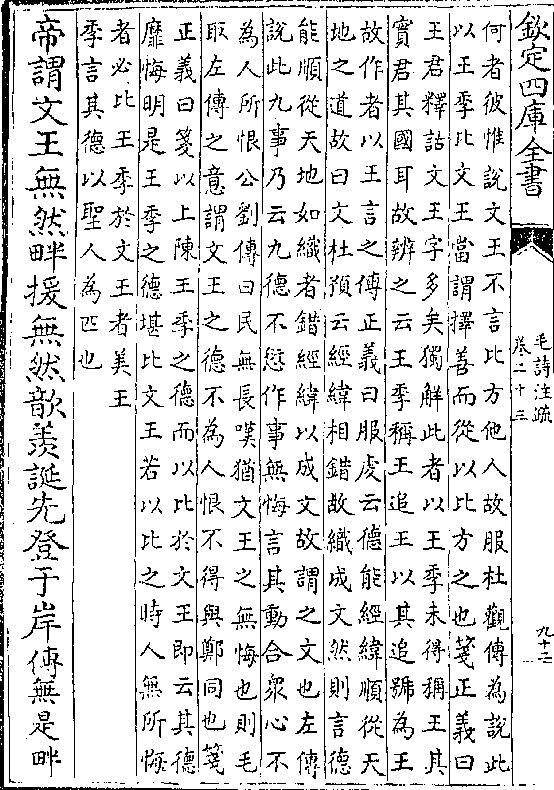 欽定四庫全書
毛詩注疏
卷二十三
九十二
何者彼惟說文王不言比方他人故服杜觀傳為說此
以王季比文王當謂擇善而從以比方之也箋正義曰
王君釋詁文王字多矣獨解此者以王季未得稱王其
實君其國耳故辨之云王季稱王追王以其追號為王
故作者以王言之傳正義曰服虔云德能經緯順從天
地之道故曰文杜預云經緯相錯故織成文然則言德
能順從天地如織者錯經緯以成文故謂之文也左傳
說此九事乃云九德不愆作事無悔言其動合衆心不
為人所恨公劉傳曰民無長嘆猶文王之無悔也則毛
取左傳之意謂文王之德不為人恨不得與鄭同也箋
正義曰箋以上陳王季之德而以比於文王即云其德
靡悔明是王季之德堪比文王若以比之時人無所悔
者必比王季於文王者美王
季言其德以聖人為匹也
帝謂文王無然畔援無然歆羨誕先登于岸傳無是畔